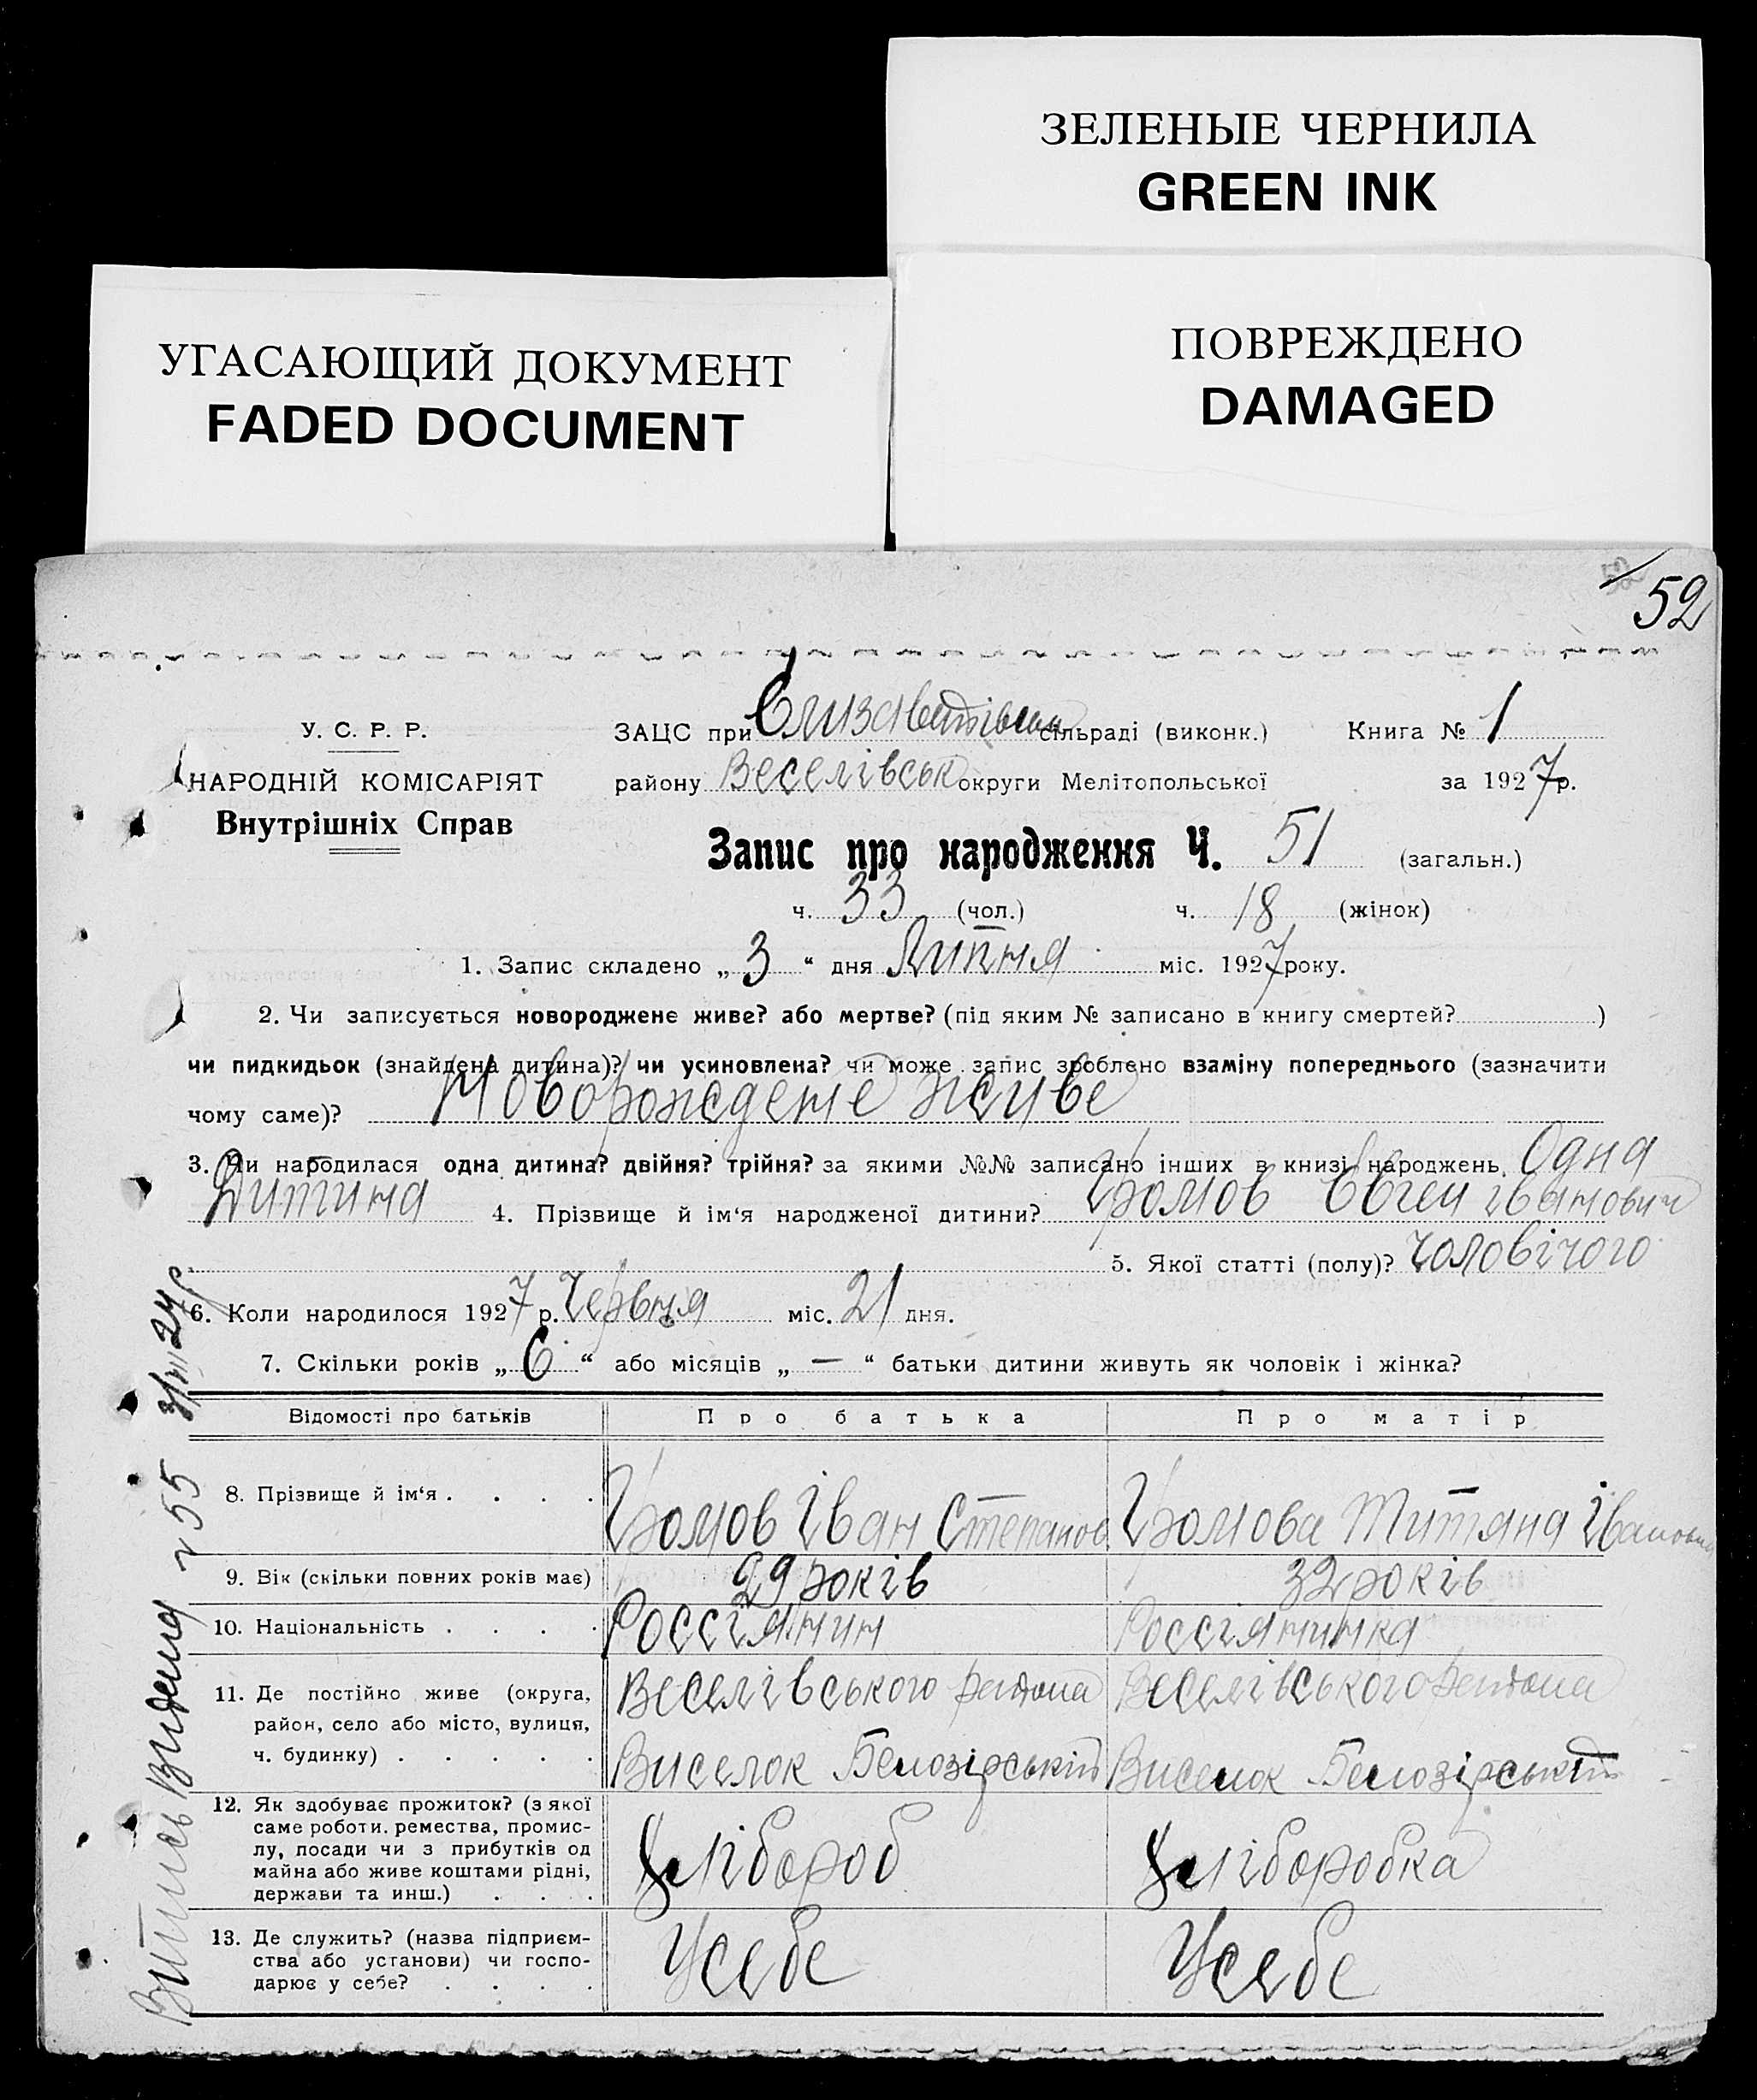 ЗЕЛЕНЫЕ ЧЕРНИЛА
GREEN INK
УГАСАЮЩИЙ ДОКУМЕНТ
FADED DOCUMENT
ПОВРЕЖДЕНО
DAMAGED
52
У. С. Р. Р.
НАРОДНІЙ КОМІСАРІЯТ
Внутрішніх Справ
ЗАЦС при сільраді (виконк.) Книга № 1
району Веселівськ округи Мелітопольської за 1927 р.
Запис про народження Ч. 51 (загальн.)
ч. 33 (чол.) ч. 18 (жінок)
1. Запис складено „ 3 “ дня Липня міс. 1927 року.
2. Чи записується новороджене живе? або мертве? (під яким № записано в книгу смертей? )
чи пидкидьок (знайдена дитина)? чи усиновлена? чи може запис зроблено взаміну попереднього (зазначити
чому саме)? Новорождене живе
3. Чи народилася одна дитина? двійня? трійня? за якими №№ записано інших в книзі народжень. Одна
Дитина 4. Прізвище й ім‘я народженої дитини? Громов Євген Іванович
5. Якої статті (полу)? чоловічого
6. Коли народилося 1927 р. Червня міс. 21 дня.
7. Скільки років „ 6 “ або місяців „ — “ батьки дитини живуть як чоловік і жінка?
Відомості про батьків Про батька Про матір
8. Прізвище й ім‘я . . . . Громов Іван Степанов Громова Титяна Івановна
9. Вік (скільки повних років має) 29 років 32 років
10. Національність . . . . Россіянин Россіянинка
11. Де постійно живе (округа, район, село або місто, вулиця, ч. будинку) . . . . . Веселівського района Веселівського района
Виселок Белозірський Виселок Белозірський
12. Як здобуває прожиток? (з якої
саме роботи. ремества, промис-
лу, посади чи з прибутків од
майна або живе коштами рідні,
держави та инш.) . . . . Хлібороб Хліборобка
13. Де служить? (назва підприєм-
ства або установи) чи госпо-
дарює у себе? . . . . Усебе Усебе
Витись Видена 55